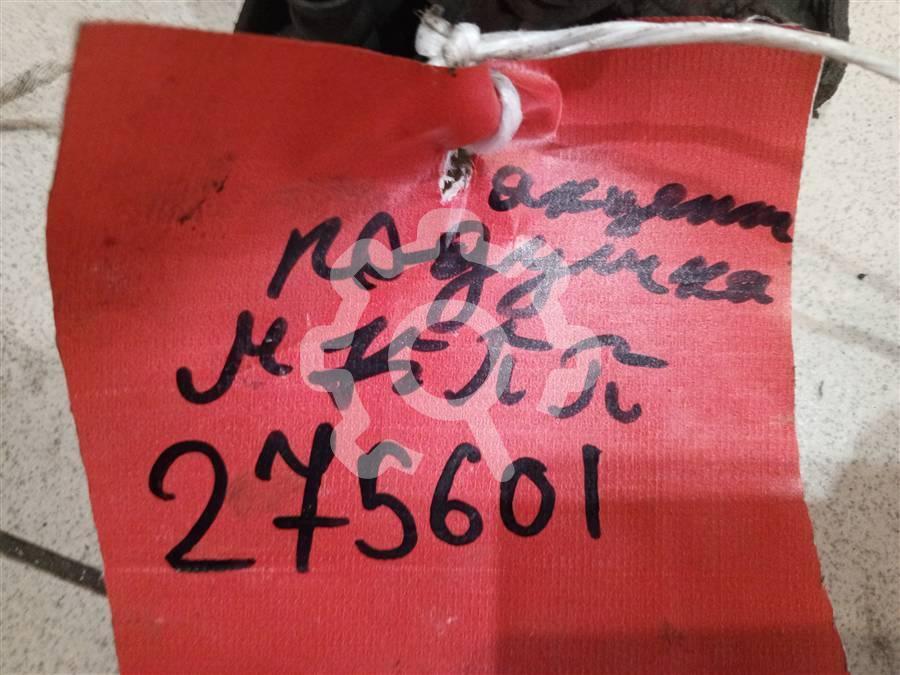 акцент
подушка
МКПП
275601